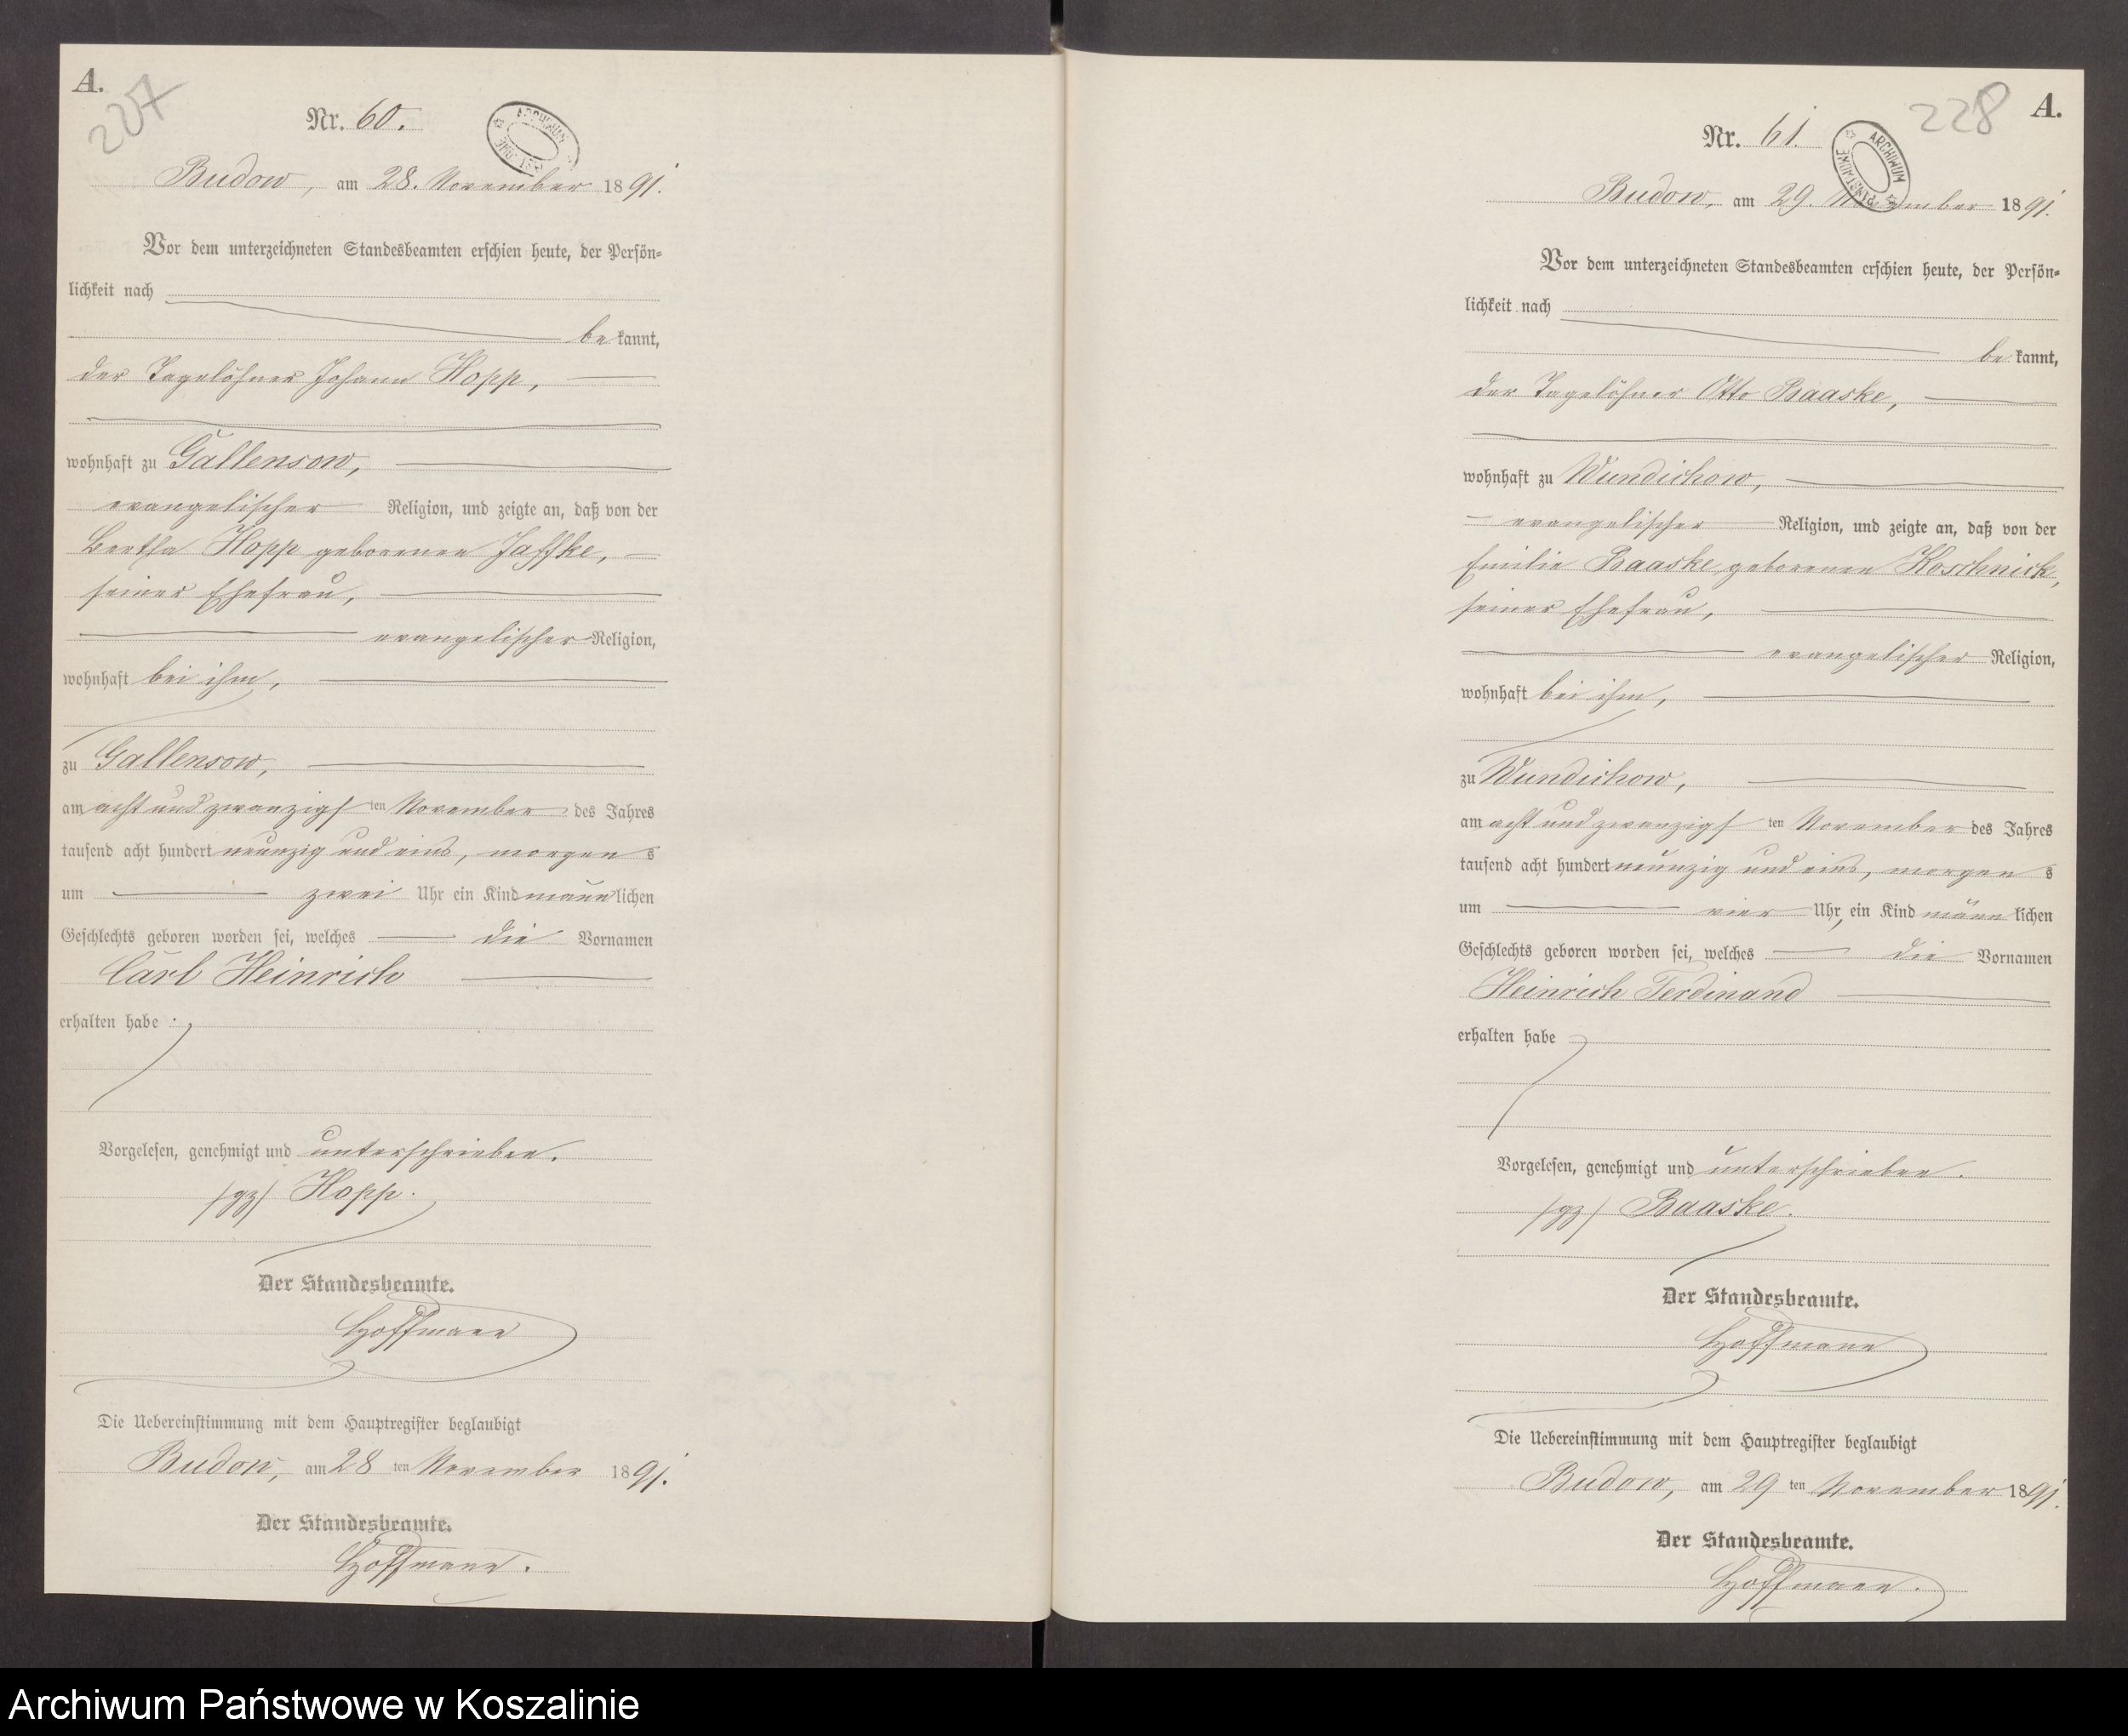 A.
227
Nr. 60.
ARCHIWUM PAŃSTWOWE
Budow, am 28. November 1891.
Vor dem unterzeichneten Standesbeamten erschien heute, der Persön-
lichkeit nach
bekannt,
der Tagelöhner Johann Hopp,
wohnhaft zu Gallensow,
evangelischer Religion, und zeigte an, daß von der
Bertha Hopp geborenen Jaffke,
seiner Ehefrau,
evangelischer Religion,
wohnhaft bei ihm,
zu Gallensow,
am acht und zwanzigsten November des Jahres
tausend acht hundert neunzig und eins, morgens
um zwei Uhr ein Kind männlichen
Geschlechts geboren worden sei, welches die Vornamen
Carl Heinrich
erhalten habe.
Vorgelesen, genehmigt und unterschrieben.
/gz/ Hopp.
Der Standesbeamte.
Hoffmann
Die Uebereinstimmung mit dem Hauptregister beglaubigt
Budow, am 28ten November 1891.
Der Standesbeamte.
Hoffmann.
228
A.
Nr. 61.
ARCHIWUM PAŃSTWOWE
Budow, am 29. November 1891.
Vor dem unterzeichneten Standesbeamten erschien heute, der Persön-
lichkeit nach
bekannt,
der Tagelöhner Otto Baaske,
wohnhaft zu Wundichow,
evangelischer Religion, und zeigte an, daß von der
Emilie Baaske geborenen Koschnick,
seiner Ehefrau,
evangelischer Religion,
wohnhaft bei ihm,
zu Wundichow,
am acht und zwanzigsten November des Jahres
tausend acht hundert neunzig und eins, morgens
um vier Uhr, ein Kind männlichen
Geschlechts geboren worden sei, welches die Vornamen
Heinrich Ferdinand
erhalten habe
Vorgelesen, genehmigt und unterschrieben.
/gz/ Baaske.
Der Standesbeamte.
Hoffmann
Die Uebereinstimmung mit dem Hauptregister beglaubigt
Budow, am 29ten November 1891.
Der Standesbeamte.
Hoffmann.
Archiwum Państwowe w Koszalinie